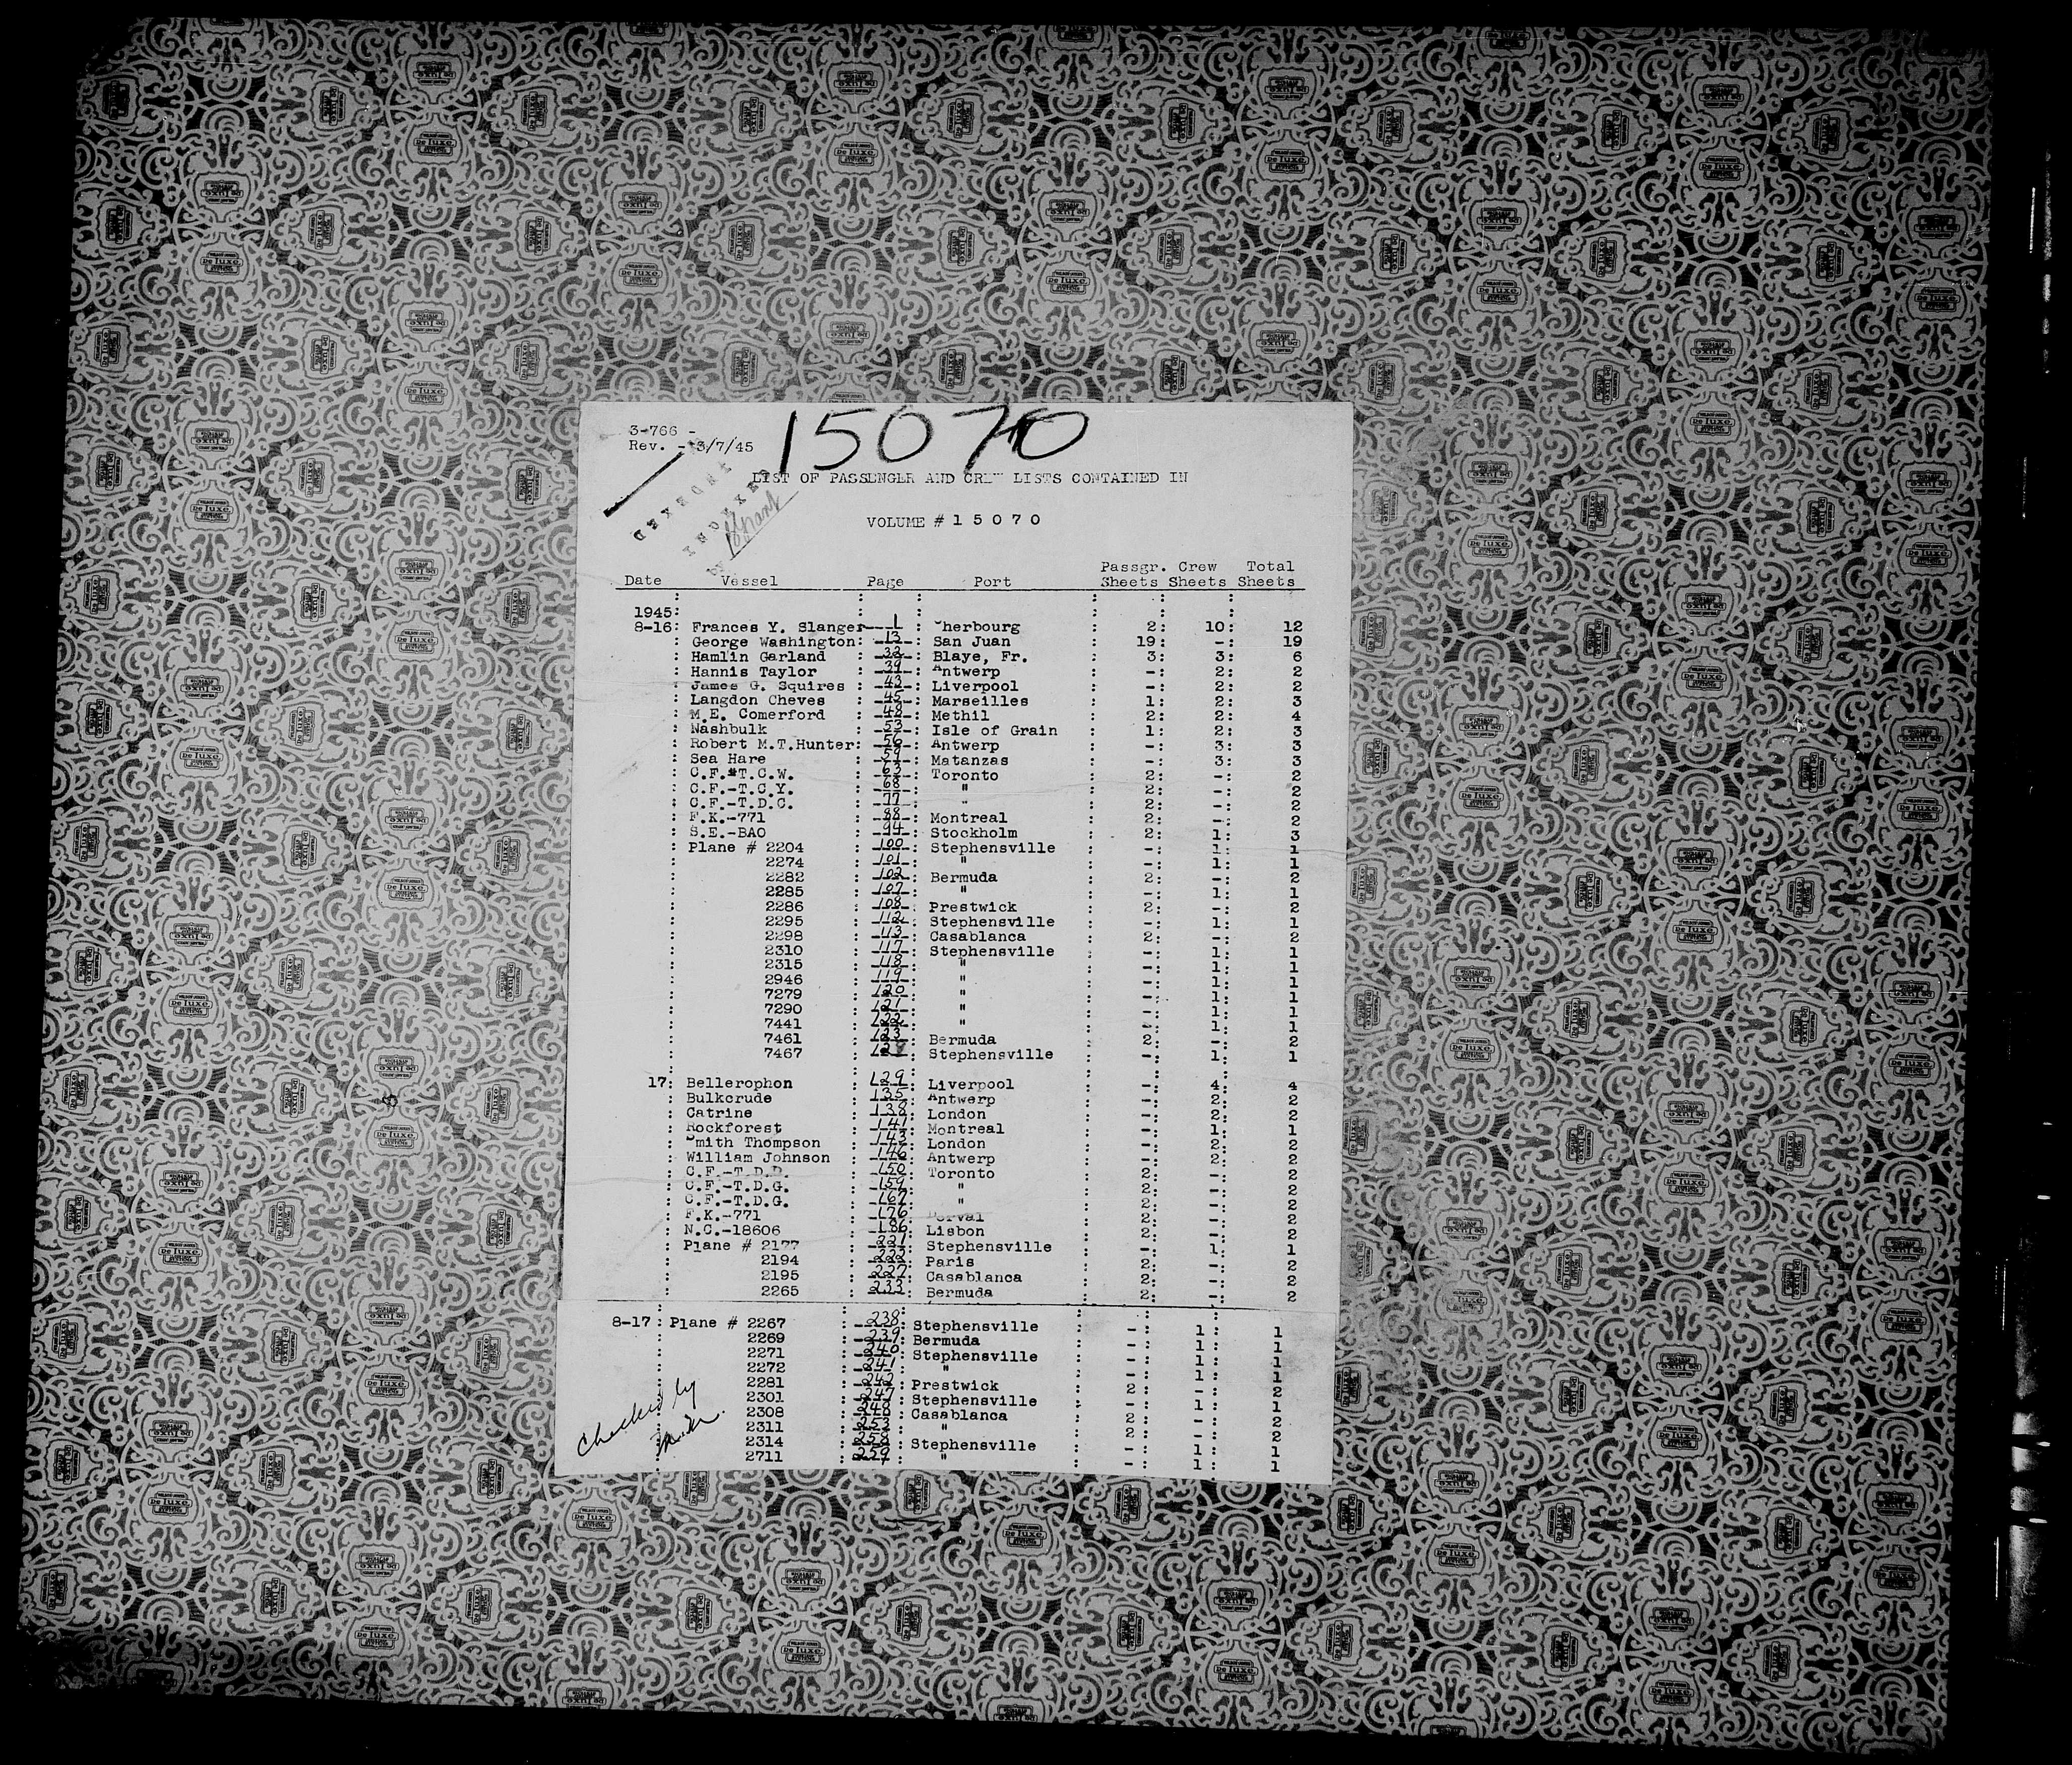 15070
3-766 -
Rev. - 3/7/45
INDEXED
LIST OF PASSENGER AND CREW LISTS CONTAINED IN
VOLUME # 1 5 0 7 0
Date Vessel Page Port Passgr. Sheets Crew Sheets Total Sheets
1945:
8-16: Frances Y. Slanger 1 : Cherbourg : 2: 10: 12
: George Washington: 13 : San Juan : 19: -: 19
: Hamlin Garland : 32 : Blaye, Fr. : 3: 3: 6
: Hannis Taylor : 39 : Antwerp : -: 2: 2
: James G. Squires : 43 : Liverpool : -: 2: 2
: Langdon Cheves : 45 : Marseilles : 1: 2: 3
: M.E. Comerford : 48 : Methil : 2: 2: 4
: Nashbulk : 53 : Isle of Grain : 1: 2: 3
: Robert M.T.Hunter: 56 : Antwerp : -: 3: 3
: Sea Hare : 59 : Matanzas : -: 3: 3
: C.F.-T.C.W. : 63 : Toronto : 2: -: 2
: C.F.-T.C.Y. : 68 : " : 2: -: 2
: C.F.-T.D.C. : 77 : " : 2: -: 2
: F.K.-771 : 88 : Montreal : 2: -: 2
: S.E.-BAO : 94 : Stockholm : 2: 1: 3
: Plane # 2204 : 100 : Stephensville : -: 1: 1
: 2274 : 101 : " : -: 1: 1
: 2282 : 102 : Bermuda : 2: -: 2
: 2285 : 107 : " : -: 1: 1
: 2286 : 108 : Prestwick : 2: -: 2
: 2295 : 112 : Stephensville : -: 1: 1
: 2298 : 113 : Casablanca : 2: -: 2
: 2310 : 117 : Stephensville : -: 1: 1
: 2315 : 118 : " : -: 1: 1
: 2946 : 119 : " : -: 1: 1
: 7279 : 120 : " : -: 1: 1
: 7290 : 121 : " : -: 1: 1
: 7441 : 122 : " : -: 1: 1
: 7461 : 123 : Bermuda : 2: -: 2
: 7467 : 128 : Stephensville : -: 1: 1
17: Bellerophon : 129 : Liverpool : -: 4: 4
: Bulkcrude : 135 : Antwerp : -: 2: 2
: Catrine : 138 : London : -: 2: 2
: Rockforest : 141 : Montreal : -: 1: 1
: Smith Thompson : 143 : London : -: 2: 2
: William Johnson : 146 : Antwerp : -: 2: 2
: C.F.-T.D.D. : 150 : Toronto : 2: -: 2
: C.F.-T.D.G. : 159 : " : 2: -: 2
: C.F.-T.D.G. : 167 : " : 2: -: 2
: F.K.-771 : 176 : Dorval : 2: -: 2
: N.C.-18606 : 186 : Lisbon : 2: -: 2
: Plane # 2177 : 221 : Stephensville : -: 1: 1
: 2194 : 222 : Paris : 2: -: 2
: 2195 : 227 : Casablanca : 2: -: 2
: 2265 : 233 : Bermuda : 2: -: 2
8-17 : Plane # 2267 : 238 : Stephensville : - : 1 : 1
: 2269 : 239 : Bermuda : - : 1 : 1
: 2271 : 240 : Stephensville : - : 1 : 1
: 2272 : 241 : " : - : 1 : 1
: 2281 : 242 : Prestwick : 2 : - : 2
: 2301 : 247 : Stephensville : - : 1 : 1
: 2308 : 248 : Casablanca : 2 : - : 2
: 2311 : 253 : " : 2 : - : 2
: 2314 : 258 : Stephensville : - : 1 : 1
: 2711 : 259 : " : - : 1 : 1
Checked by
De luxe